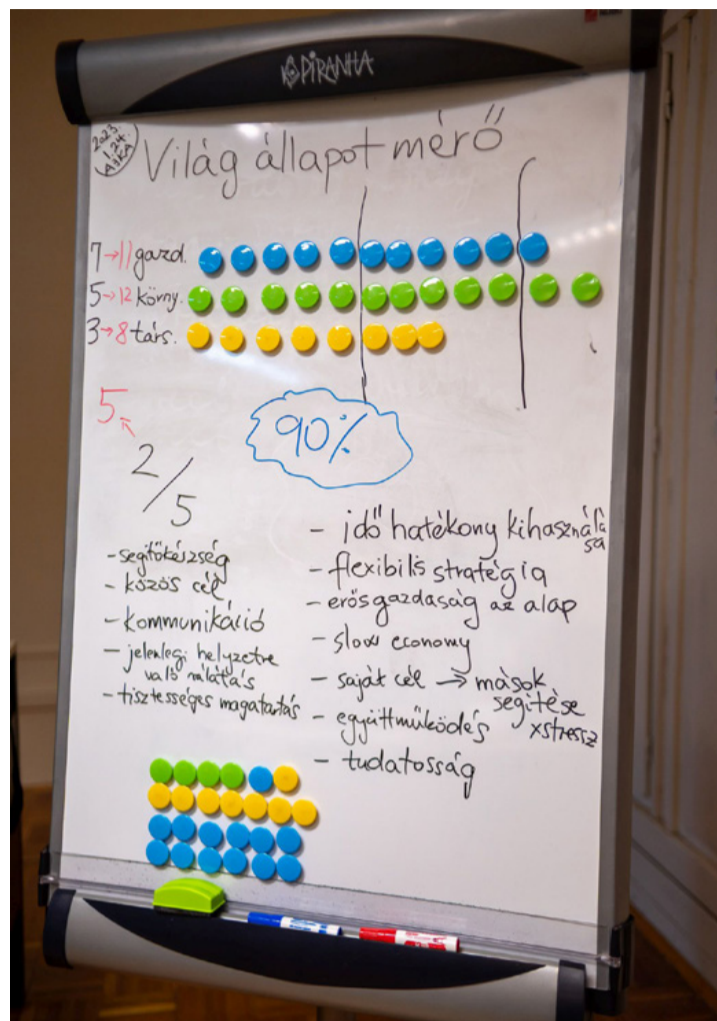 PIRANHA
2023.
1.24.
Világ állapot mérő
7→11 gazd.
5→12 körny.
3→8 társ.
5
90%
2/5
-segítőkészség
- közös cél
- kommunikáció
- jelenlegi helyzetre
való rálátás
- tisztességes magatartás
- idő hatékony kihasználá
sa
- flexibilis stratégia
- erős gazdaság az alap
- slow economy
- saját cél → mások
segítése
xstressz
- együttműködés
- tudatosság